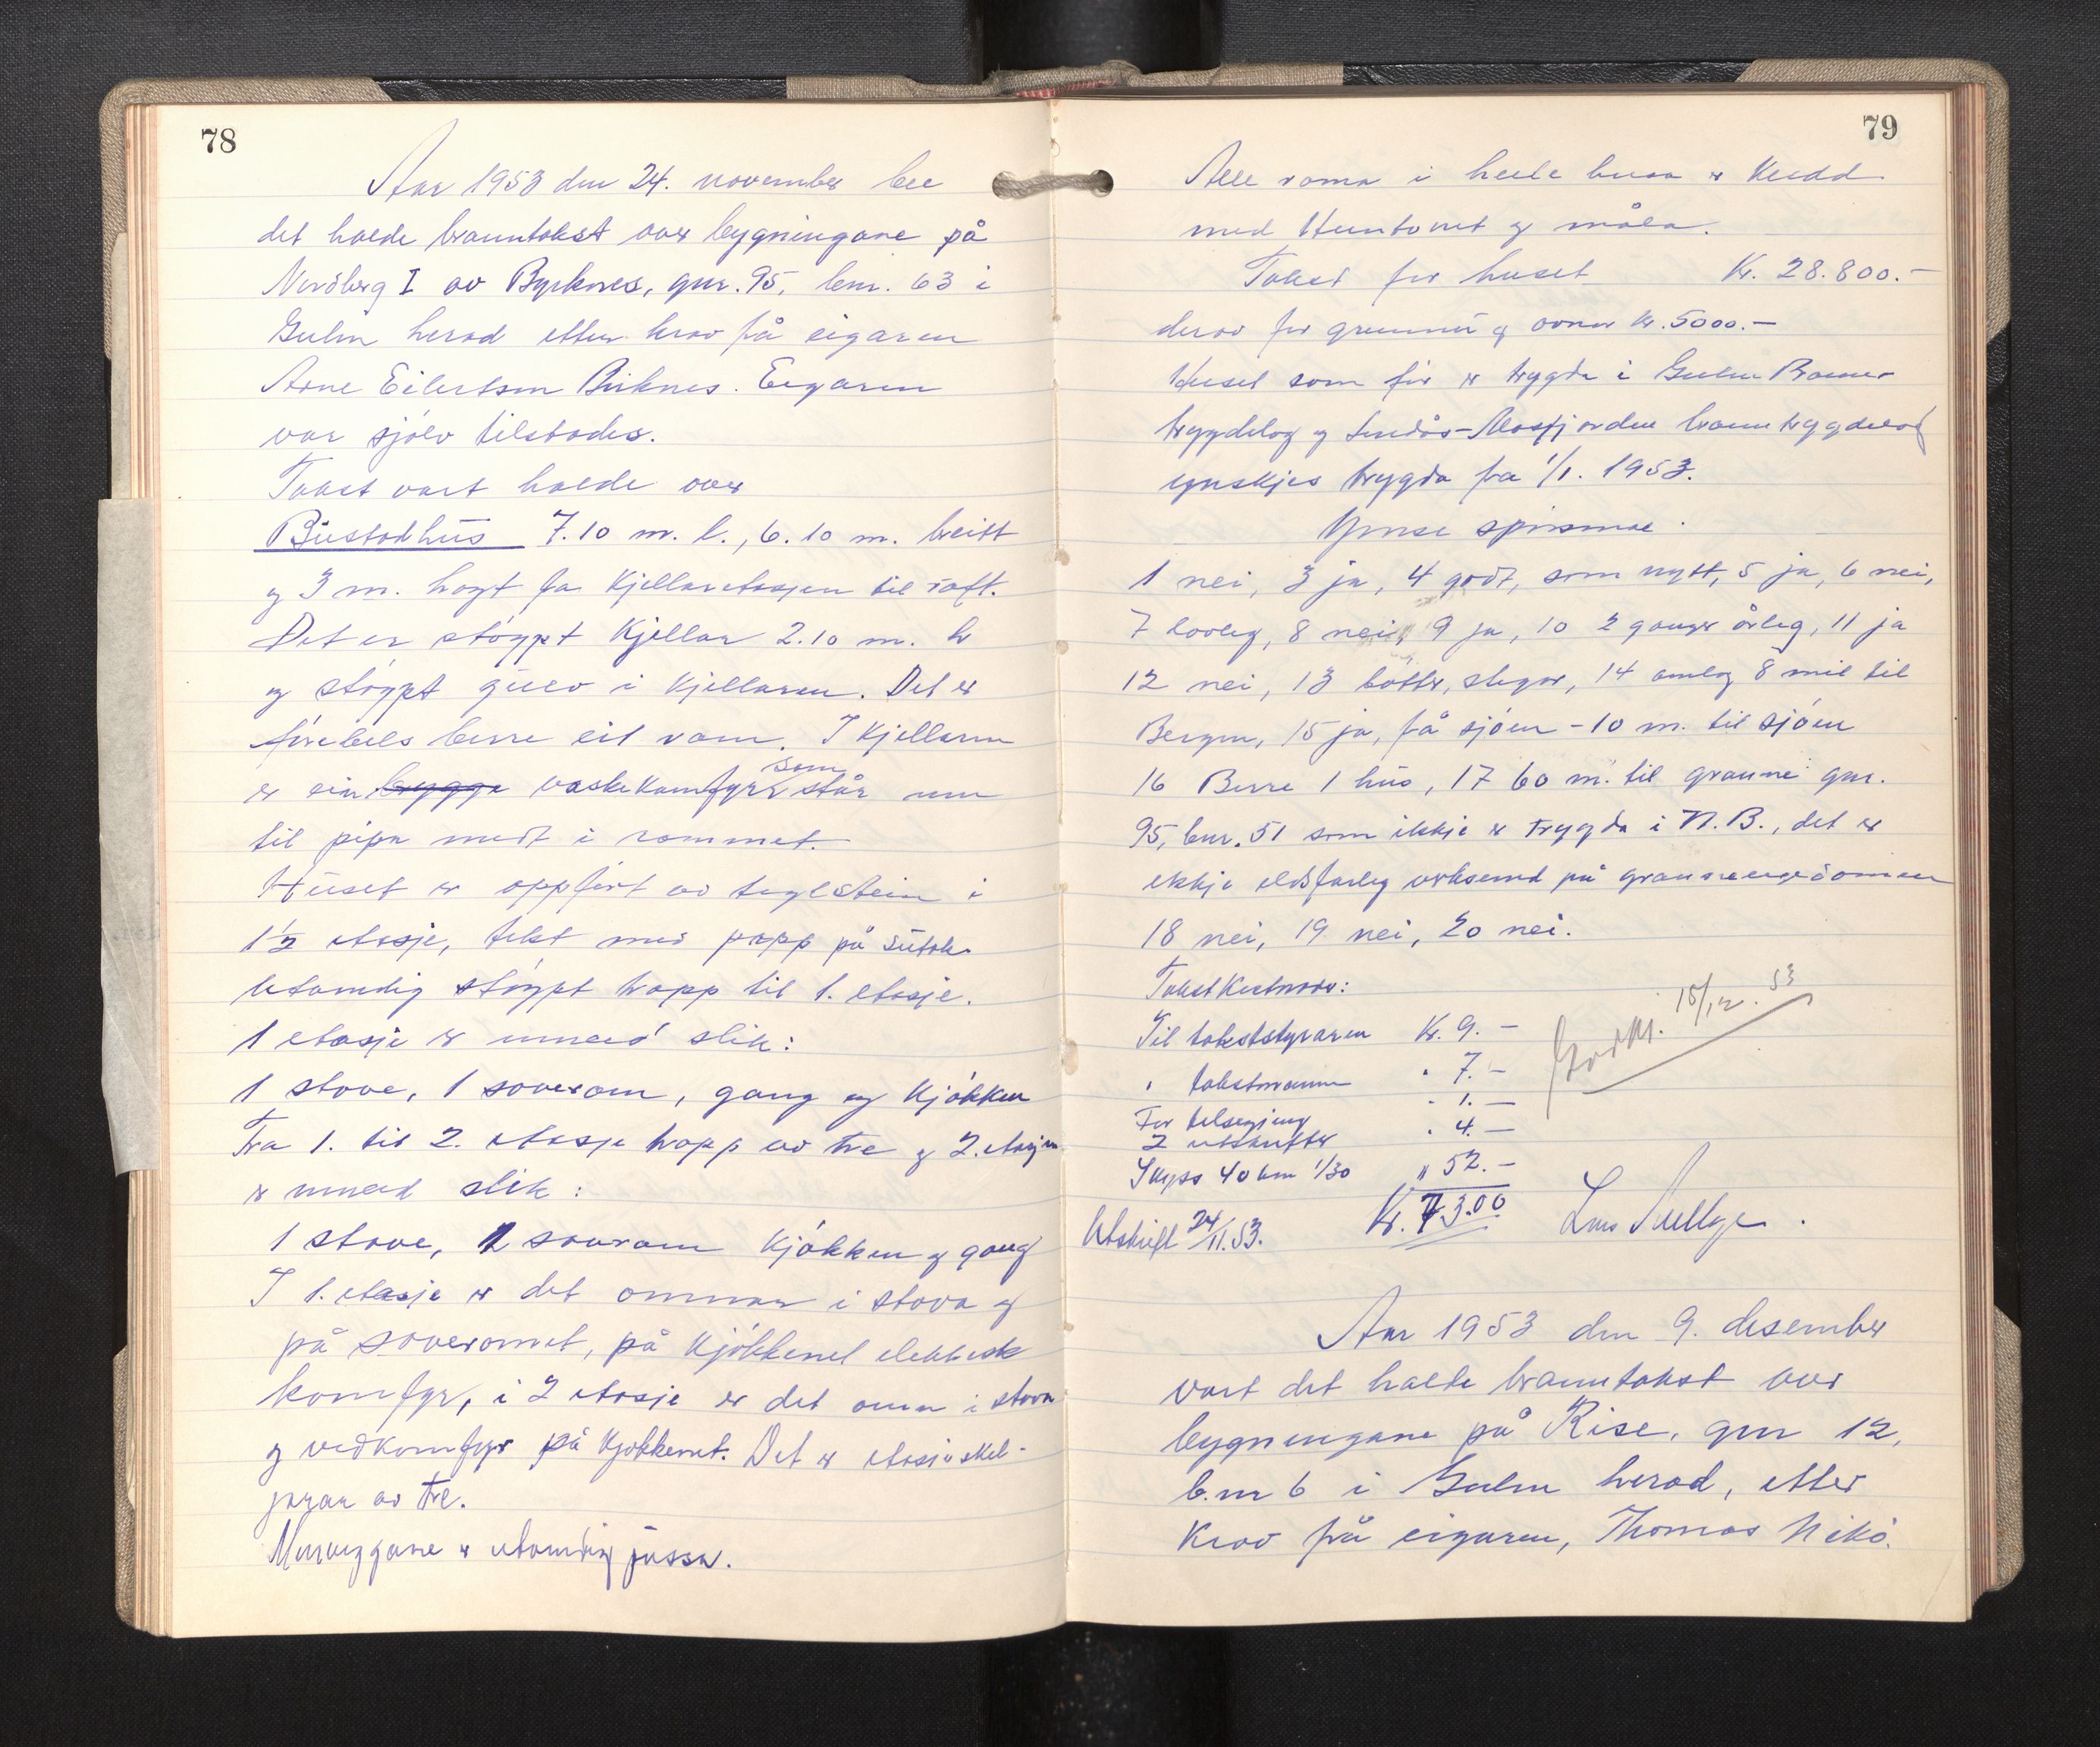 78
Aar 1953 den 24. november ble
det halde branntakst over bygningane på
Nordberg I av Byrknes, gnr. 95, bnr. 63 i
Gulen herad etter krav frå eigaren
Arne Eilertsen Birknes. Eigaren
var sjølv tilstades.
Takst vart halde over
Bustadhus 7.10 m. l., 6.10 m. breitt
og 3 m. høgt fra kjellaretasjen til raft.
Det er støypt kjellar 2.10 m. h
og støypt gulv i kjellaren. Det er
førebels berre eit rom. I kjellaren
er ein brygge vaskekomfyr som står inn
til pipa midt i rommet.
Huset er oppført av teglstein i
1½ etasje, tekt med papp på sutak.
Utvendig støypt trapp til 1. etasje.
1 etasje er innreid slik:
1 stove, 1 soverom, gang og kjøkken
Fra 1. til 2. etasje trapp av tre og 2. etasjen
er innreid slik:
1 stove, 1 soverom kjøkken og gang
I 1. etasje er det omnar i stova og
på soveromet, på kjøkkenet elektrisk
komfyr, i 2 etasje er det omn i stova
og vedkomfyr på kjøkkenet. Det er etasjeskel-
jarar av tre.
Murveggane er utvendig pussa.
79
Alle roma i heile husa er kledd
med Huntonit og måla.
Takst for huset Kr. 28.800.-
derav for grunnmur og ovnar kr. 5000.-
Huset som før er trygda i Gulen Brann-
trygdelag og Lindås-Masfjorden branntrygdelag
ynskjes trygda fra 1/1. 1953.
Ymse spørsmål.
1 nei, 3 ja, 4 godt, som nytt, 5 ja, 6 nei,
7 lovleg, 8 nei, 9 ja, 10 2 ganger årleg, 11 ja
12 nei, 13 bøtter, stegar, 14 omlag 8 mil til
Bergen, 15 ja, frå sjøen - 10 m. til sjøen
16 Berre 1 hus, 17 60 m. til granne gnr.
95, bnr. 51 som ikkje er trygda i N.B., det er
ikkje eldsfarleg verksemd på granneeigedomen
18 nei, 19 nei, 20 nei.
Takstkostnader:
Til takststyraren Kr. 9. -
" takstmannen " 7. -
For tilseging " 1. -
2 utskrifter " 4. -
Skyss 40 km 1/30 " 52. -
Kr. 73.00
Godkj. 15/12. 53
Utskrift 24/11.53.
Aar 1953 den 9. desember
vart det halde branntakst over
bygningane på Rise, gnr 12,
b.nr 6 i Gulen herad, etter
krav frå eigaren, Thomas